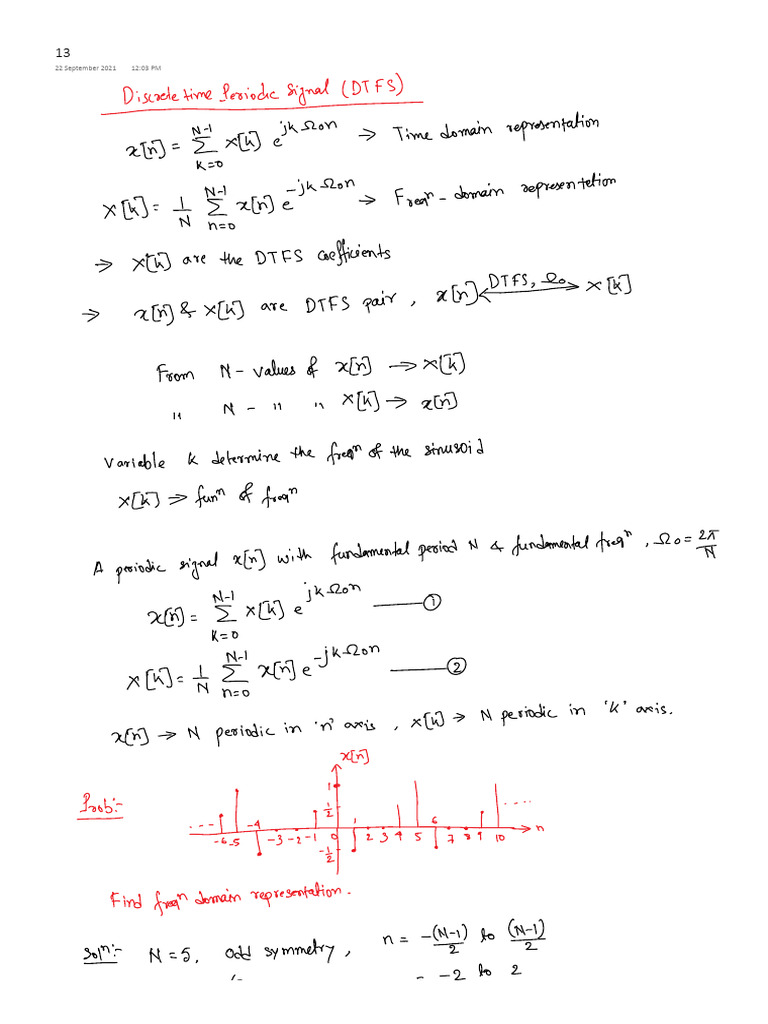 13
22 September 2021 12:03 PM
Discrete time Periodic Signal (DTFS)
x[n] = Σ_{k=0}^{N-1} X[k] e^{jkΩ₀n} → Time domain representation
X[k] = 1/N Σ_{n=0}^{N-1} x[n] e^{-jkΩ₀n} → Freqⁿ - domain representation
⇒ X[k] are the DTFS coefficients
⇒ x[n] & X[k] are DTFS pair, x[n] ←DTFS, Ω₀→ X[k]
From N - values of x[n] → X[k]
" N - " " X[k] → x[n]
Variable k determine the freqⁿ of the sinusoid
X[k] ⇒ funⁿ of freqⁿ
A periodic signal x[n] with fundamental period N & fundamental freqⁿ, Ω₀ = 2π/N
x[n] = Σ_{k=0}^{N-1} X[k] e^{jkΩ₀n} —— ①
X[k] = 1/N Σ_{n=0}^{N-1} x[n] e^{-jkΩ₀n} —— ②
x[n] → N periodic in 'n' axis, X[k] → N periodic in 'k' axis.
x[n]
Prob:-
1
1/2
-1/2
-6 -5 -4 -3 -2 -1 0 1 2 3 4 5 6 7 8 9 10 n
Find freqⁿ domain representation.
Solⁿ:- N = 5, odd symmetry, n = -(N-1)/2 to (N-1)/2
= -2 to 2